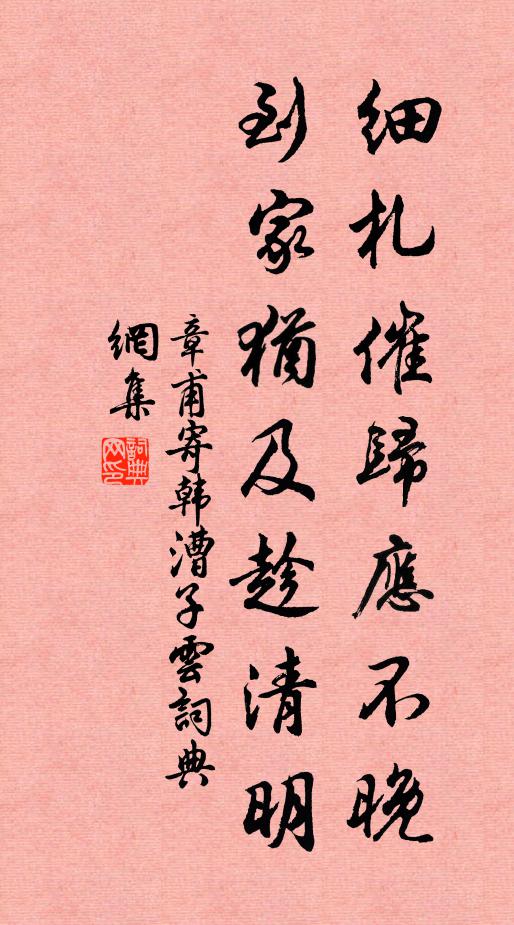 細札催歸應不晚
到家猶及趁清明
章甫寄韩漕子雲詞典
網集
詞典网印